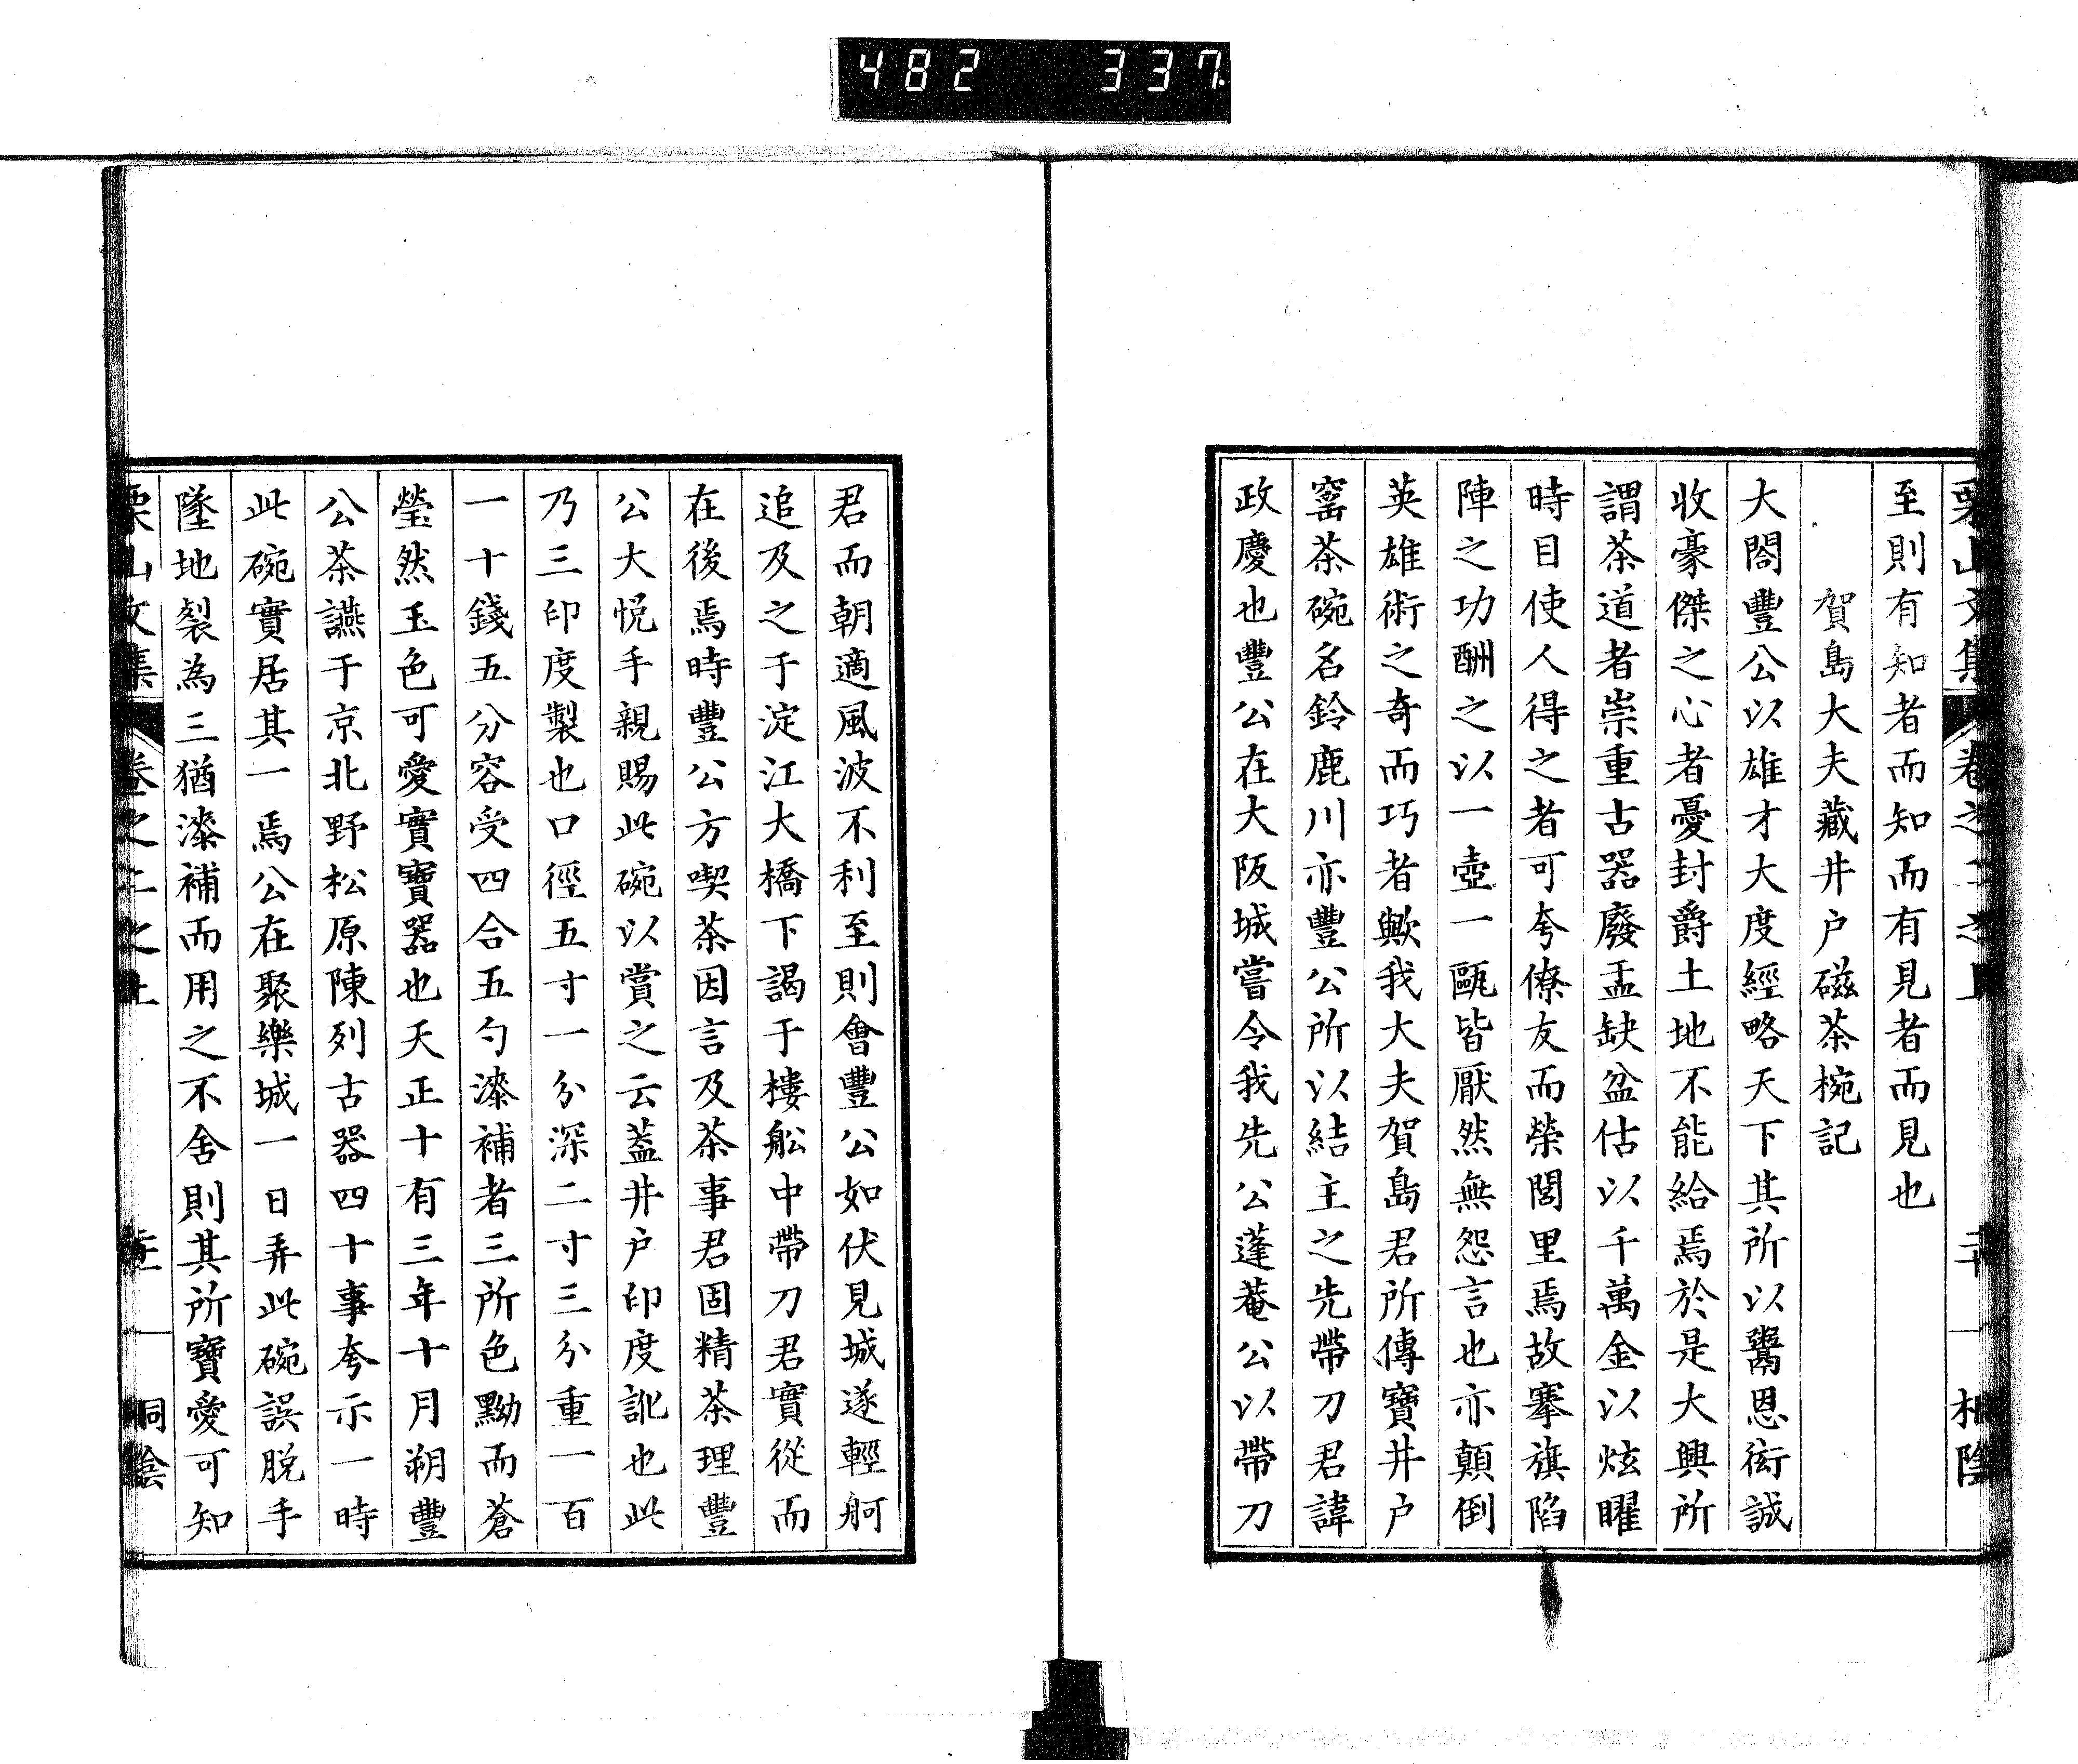 482 337
栗山文集 卷之二之上 二十 桐陰
至則有知者而知而有見者而見也
賀島大夫藏井户磁茶椀記
大閤豐公以雄才大度經略天下其所以鬻恩衒誠
收豪傑之心者憂封爵土地不能給焉於是大興所
謂茶道者崇重古器廢盂缺盆估以千萬金以炫曜
時目使人得之者可夸僚友而榮閭里焉故搴旗陷
陣之功酬之以一壺一甌皆厭然無怨言也亦顛倒
英雄術之奇而巧者歟我大夫賀島君所傳寶井户
窰茶碗名鈴鹿川亦豐公所以結主之先帶刀君諱
政慶也豐公在大阪城嘗令我先公蓬菴公以帶刀
君而朝適風波不利至則會豐公如伏見城遂輕舸
追及之于淀江大橋下謁于樓舩中帶刀君實從而
在後焉時豐公方喫茶因言及茶事君固精茶理豐
公大悦手親賜此碗以賞之云蓋井户印度訛也此
乃三印度製也口徑五寸一分深二寸三分重一百
一十錢五分容受四合五勺漆補者三所色黝而蒼
瑩然玉色可愛實寶器也天正十有三年十月朔豐
公茶讌于京北野松原陳列古器四十事夸示一時
此碗實居其一焉公在聚樂城一日弄此碗誤脱手
墜地裂為三猶漆補而用之不舍則其所寶愛可知
栗山文集 卷之二之上 桐陰